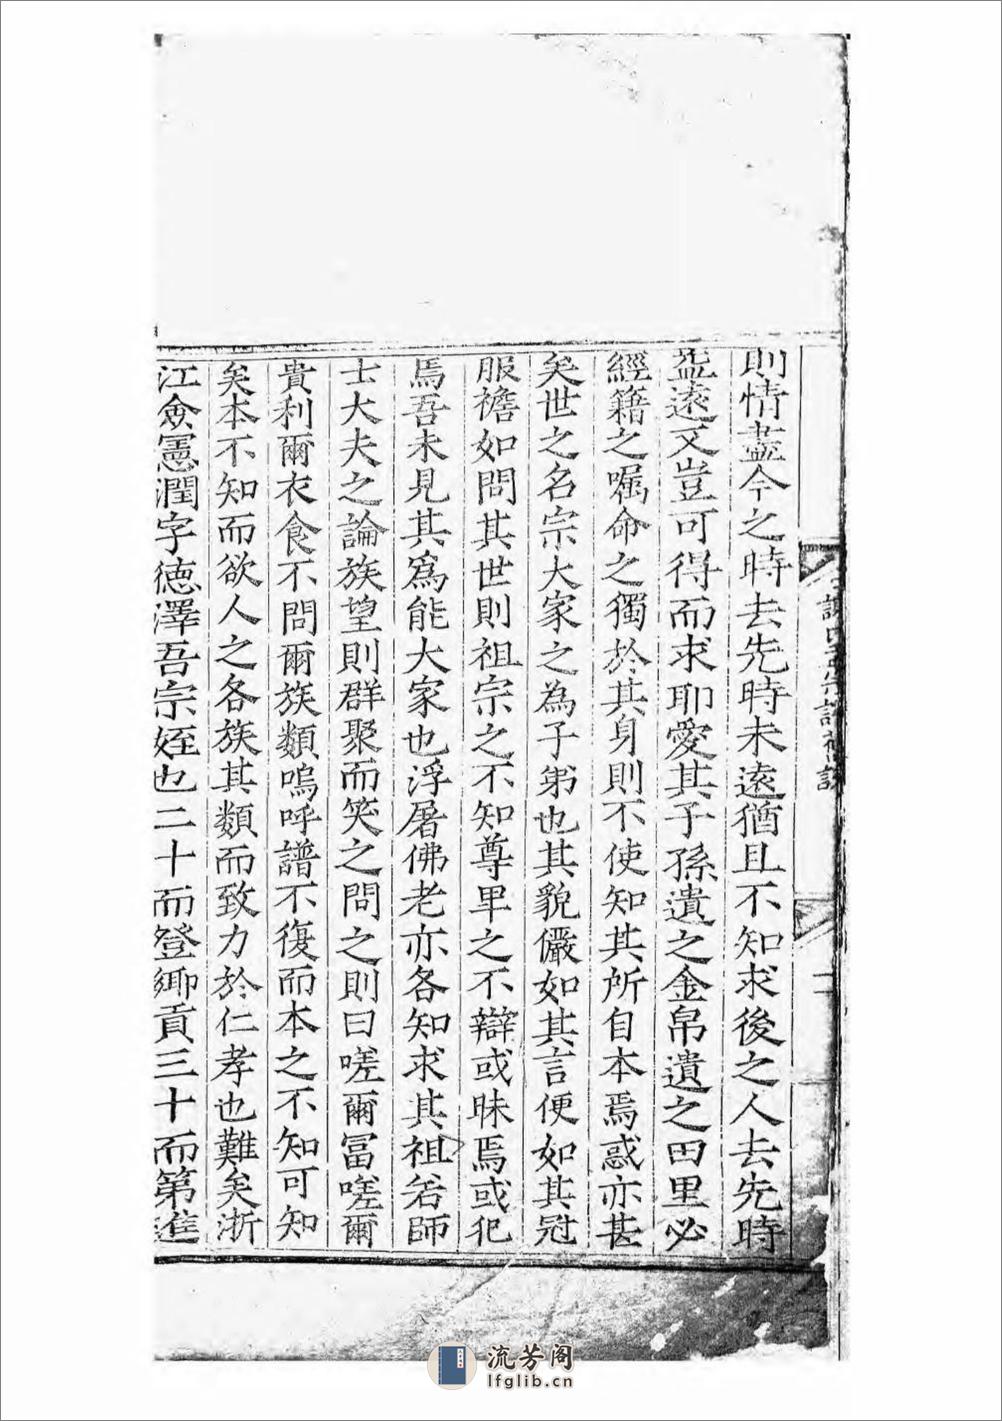 則情盡今之時去先時未遠猶且不知求後之人去先時
益遠又豈可得而求耶愛其子孫遺之金帛遺之田里必
經籍之囑命之獨於其身則不使知其所自本焉惑亦甚
矣世之名宗大家之為子弟也其貌儼如其言便如其冠
服襜如問其世則祖宗之不知尊卑之不辯或昧焉或犯
焉吾未見其為能大家也浮屠佛老亦各知求其祖若師
士大夫之論族望則群聚而笑之問之則曰嗟爾冨嗟爾
貴利爾衣食不問爾族類嗚呼譜不復而本之不知可知
矣本不知而欲人之各族其類而致力於仁孝也難矣浙
江僉憲潤字德澤吾宗姪也二十而登鄉貢三十而第進
流芳阁
lfglib.cn